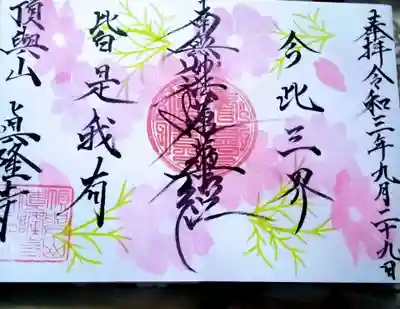 奉拝 令和三年九月二十九日
今此三界
南無妙法蓮華経
皆是我有
頂與山
眞隆寺